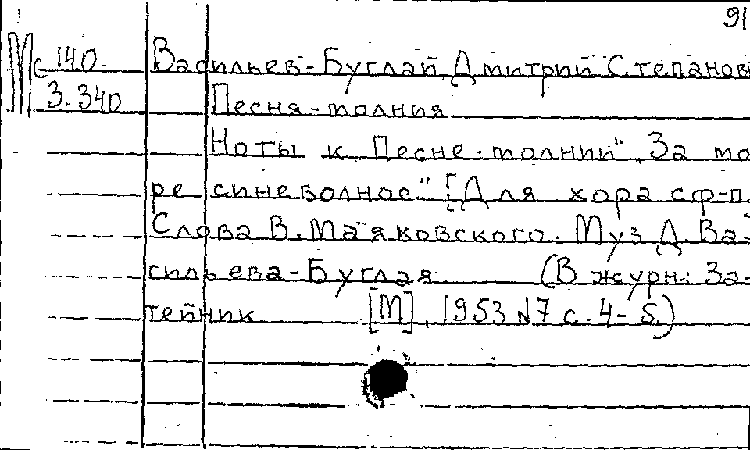 91
Мс 140 Васильев-Буглай Дмитрий Степанов
3.340 Песня-молния
Ноты к „Песне-молнии" „За мо
ре синеволное" [Для хора с ф-п.
Слова В. Маяковского. Муз Д. Ва-
сильева-Буглая (В журн: За-
тейник [М], 1953 №7 с. 4-5.)